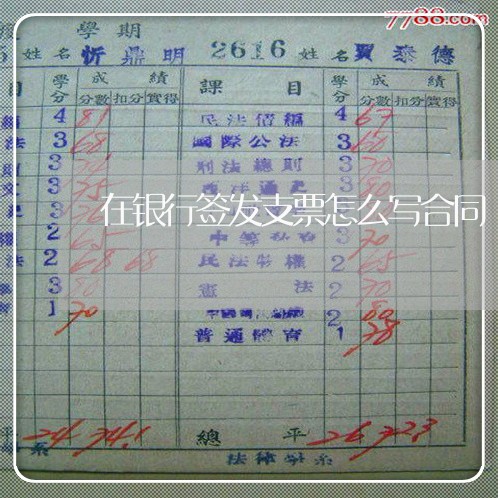 7788.com
學期
姓名 忻鼎明 2616 姓名 賈泰德
目 學分 成績 課目 學分 成績
分數 扣分 實得 分數 扣分 實得
4 81 民法債編 4 67
法 3 68 國際公法 3 60
3 刑法總則 3 70
3 75 西洋通史 3 80
在银行签发支票怎么写合同
2 65 3 70
法 2 68 68 民法物權 2 65
3 80 憲法 2 70
1 70 2 80
普通體育 1 78
平 24 74.1 總平 26 72.3
系 法律學系